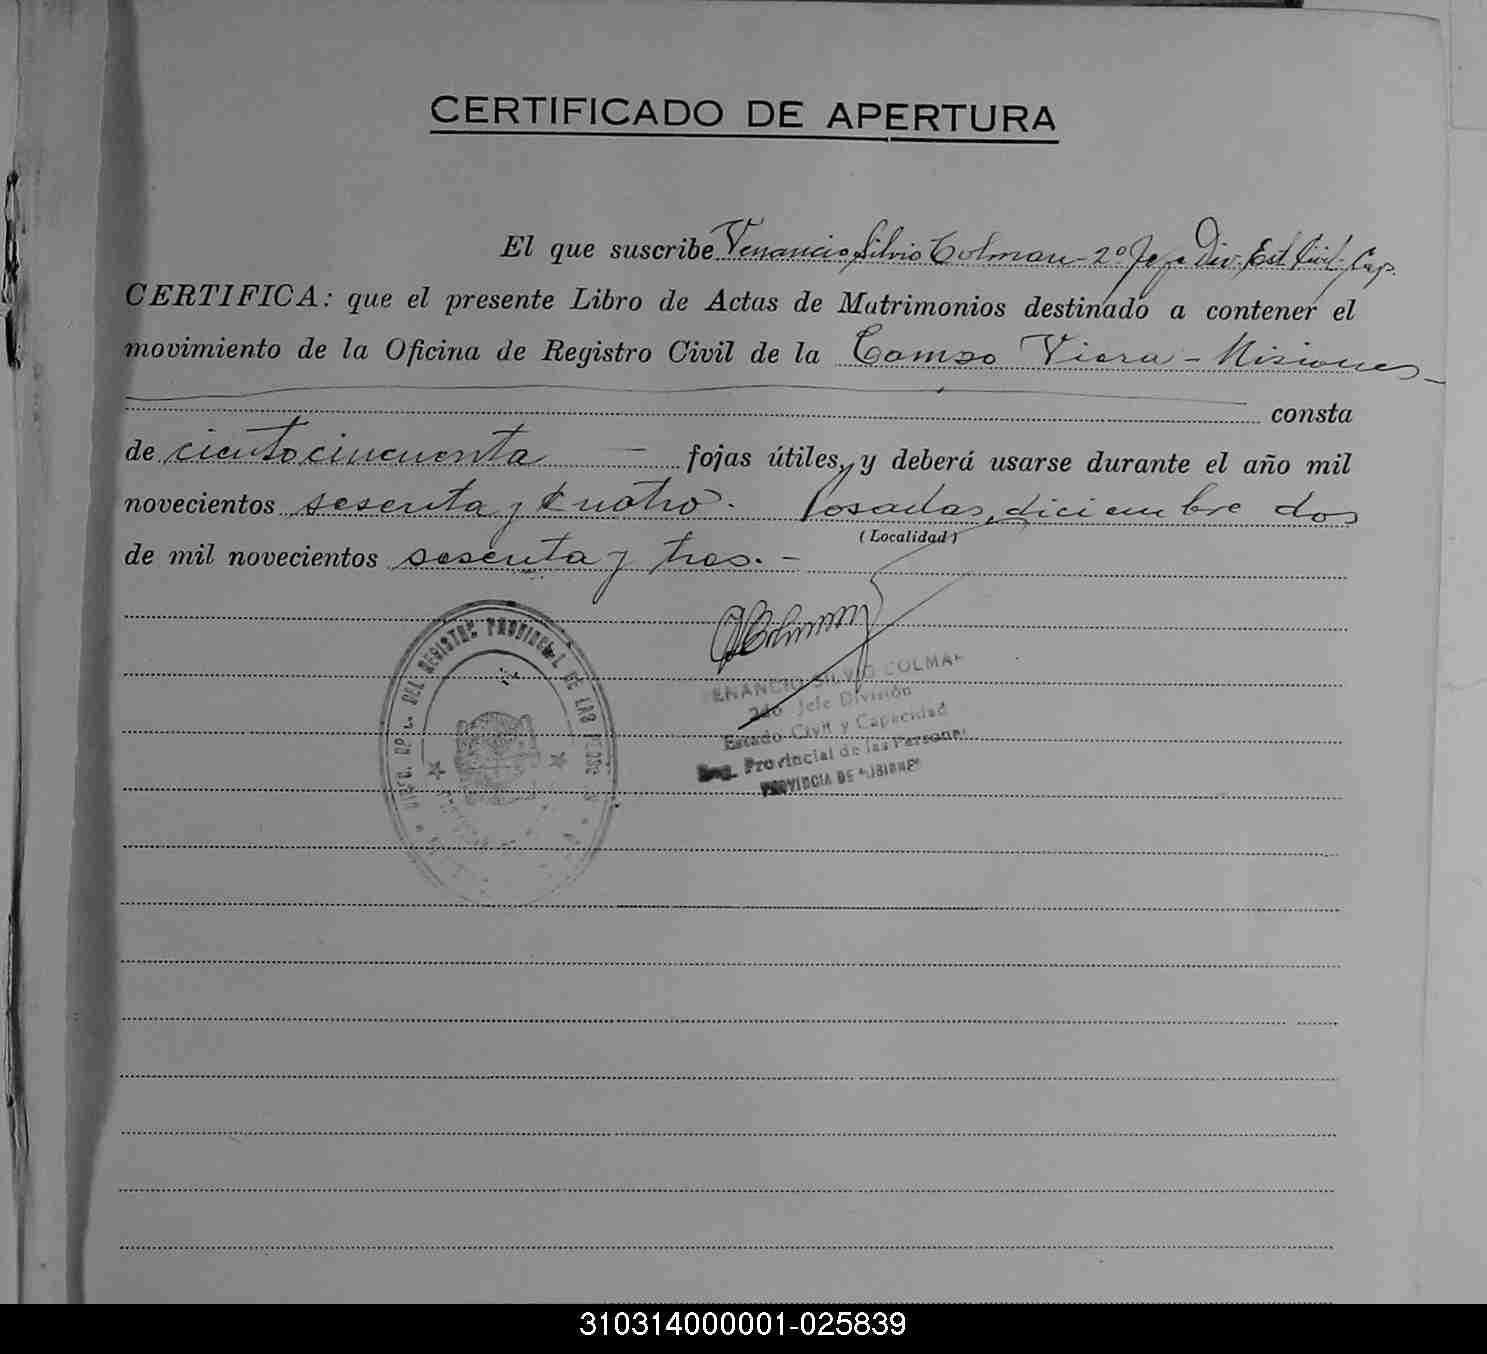 CERTIFICADO DE APERTURA
El que suscribe Venancio Silvio Colman - 2º Jefe Div. Est. Civil. Cap.
CERTIFICA: que el presente Libro de Actas de Matrimonios destinado a contener el
movimiento de la Oficina de Registro Civil de la Campo Viera - Misiones -
consta
de cientocincuenta — fojas útiles, y deberá usarse durante el año mil
novecientos sesenta y cuatro. Posadas, diciembre dos
(Localidad)
de mil novecientos sesenta y tres. -
Colman
DEL REGISTRO PROVINCIAL DE LAS
ENANCIO SILVIO COLMA
2do Jefe División
Estado Civil y Capacidad
Reg. Provincial de las Personas
PROVINCIA DE MISIONES
310314000001-025839